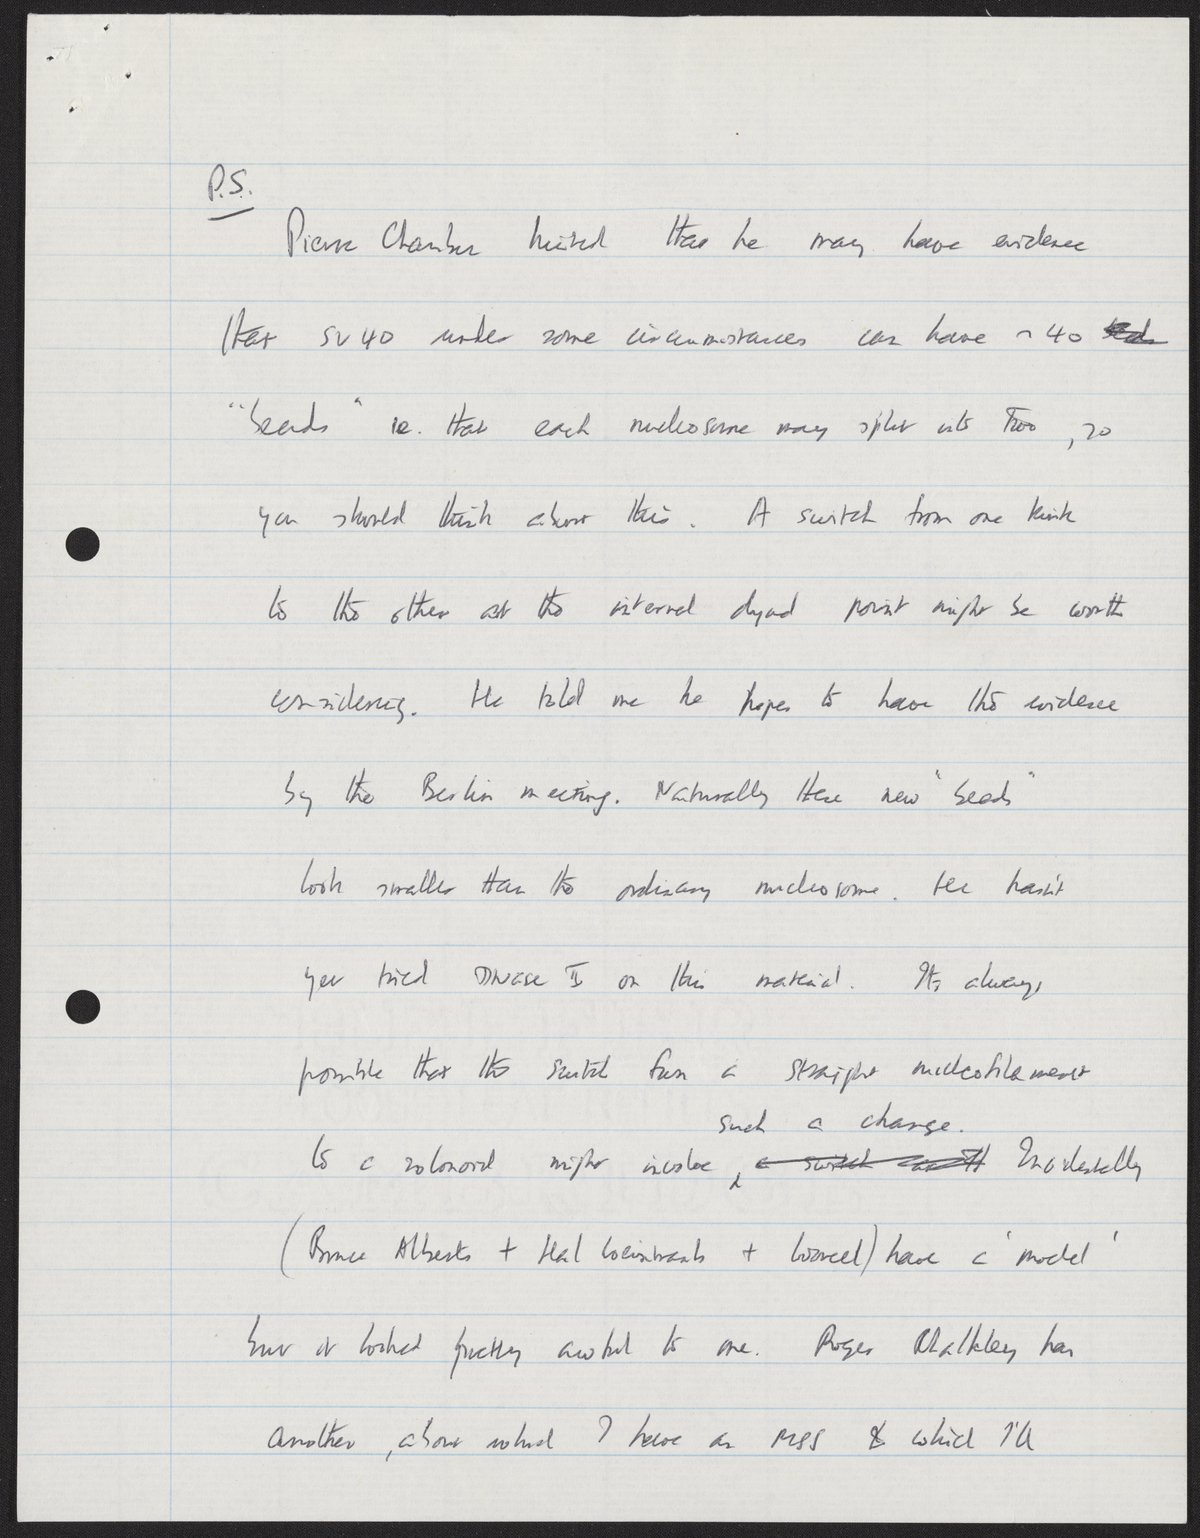 P.S.
Pierre Chambon hinted that he may have evidence
that SV40 under some circumstances can have ~ 40
"beads" ie. that each nucleosome may split into two, so
you should think about this. A switch from one kink
to the other at the internal dyad point might be worth
considering. He told me he hopes to have the evidence
by the Berlin meeting. Naturally these new "beads"
look smaller than the ordinary nucleosome. He hasn't
yet tried DNase II on this material. Its always
possible that the switch from a straight nucleofilament
such a change.
to a solenoid might involve, a switch Incidentally
(Bruce Alberts + Hal Weintraub + Worcel) have a 'model'
but it looked pretty awful to me. Roger Chalkley has
another, about which I have an MSS & which I'll